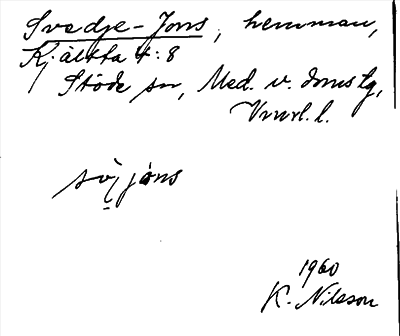 Svedje-Jons, hemman,
Kjältta 4:8
Stöde sn, Med. v. domslg,
Vnrl. l.
svj̀jòns
1960
K. Nilsson